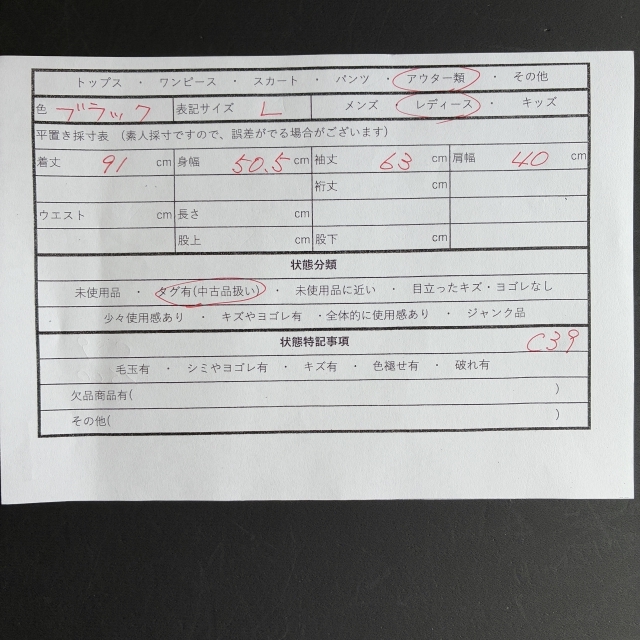 トップス ・ ワンピース ・ スカート ・ パンツ ・ アウター類 ・ その他
色 ブラック 表記サイズ L メンズ ・ レディース ・ キッズ
平置き採寸表 (素人採寸ですので、誤差がでる場合がございます)
着丈 91 cm 身幅 50.5 cm 袖丈 63 cm 肩幅 40 cm
裄丈 cm
ウエスト cm 長さ cm
股上 cm 股下 cm
状態分類
未使用品 ・ タグ有(中古品扱い) ・ 未使用品に近い ・ 目立ったキズ・ヨゴレなし
少々使用感あり ・ キズやヨゴレ有 ・全体的に使用感あり ・ ジャンク品
状態特記事項 C39
毛玉有 ・ シミやヨゴレ有 ・ キズ有 ・ 色褪せ有 ・ 破れ有
欠品商品有( )
その他( )